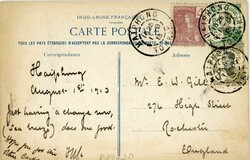 INDO-CHINE FRANÇAISE
CARTE POSTALE
TOUS LES PAYS ÉTRANGERS N'ACCEPTENT PAS LA CORRESPONDANCE
Correspondance
Adresse
HAIPHONG
TONKIN
Haiphong
August 1st 1913
Just having a change now,
(sea trip) does me good.
Hope you got my
Mr E. W. Gill
276 High Street
Rochester
England